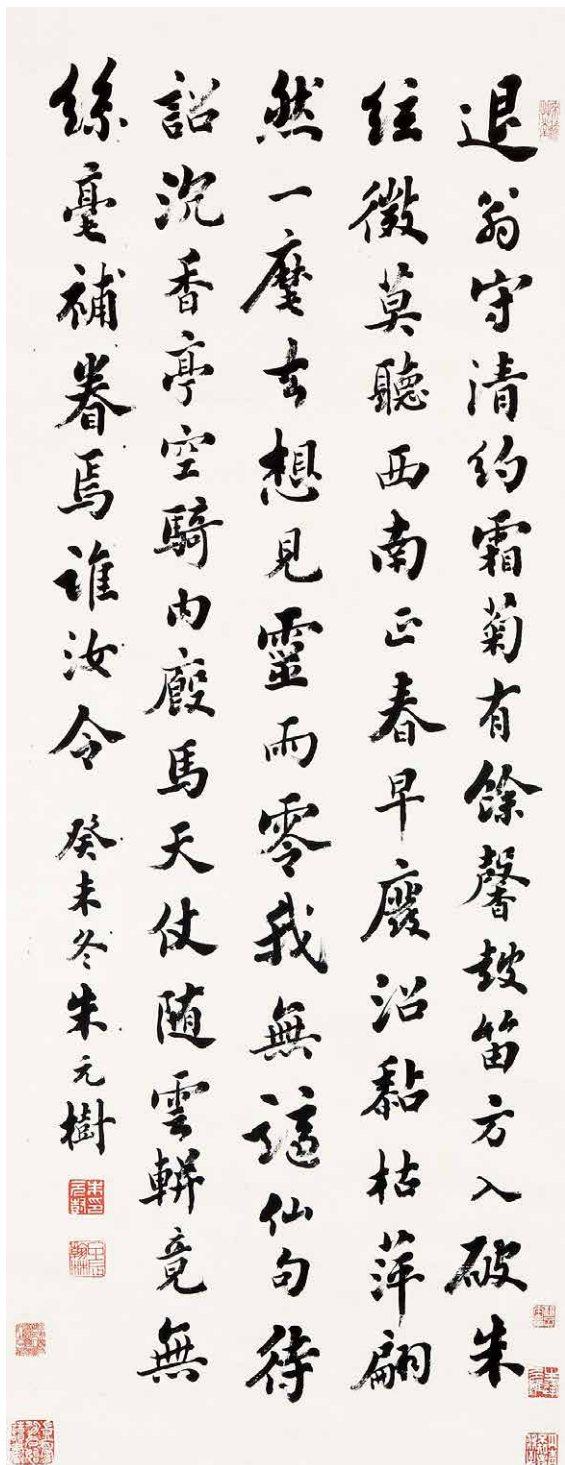 退翁守清約霜菊有餘馨鼓笛方入破朱
絃微莫聽西南正春早廢沼黏枯萍翩
然一麾去想見靈雨零我無謫仙句待
詔沉香亭空騎內廄馬天仗随雲軿竟無
絲毫補眷焉誰汝令 癸未冬朱元樹